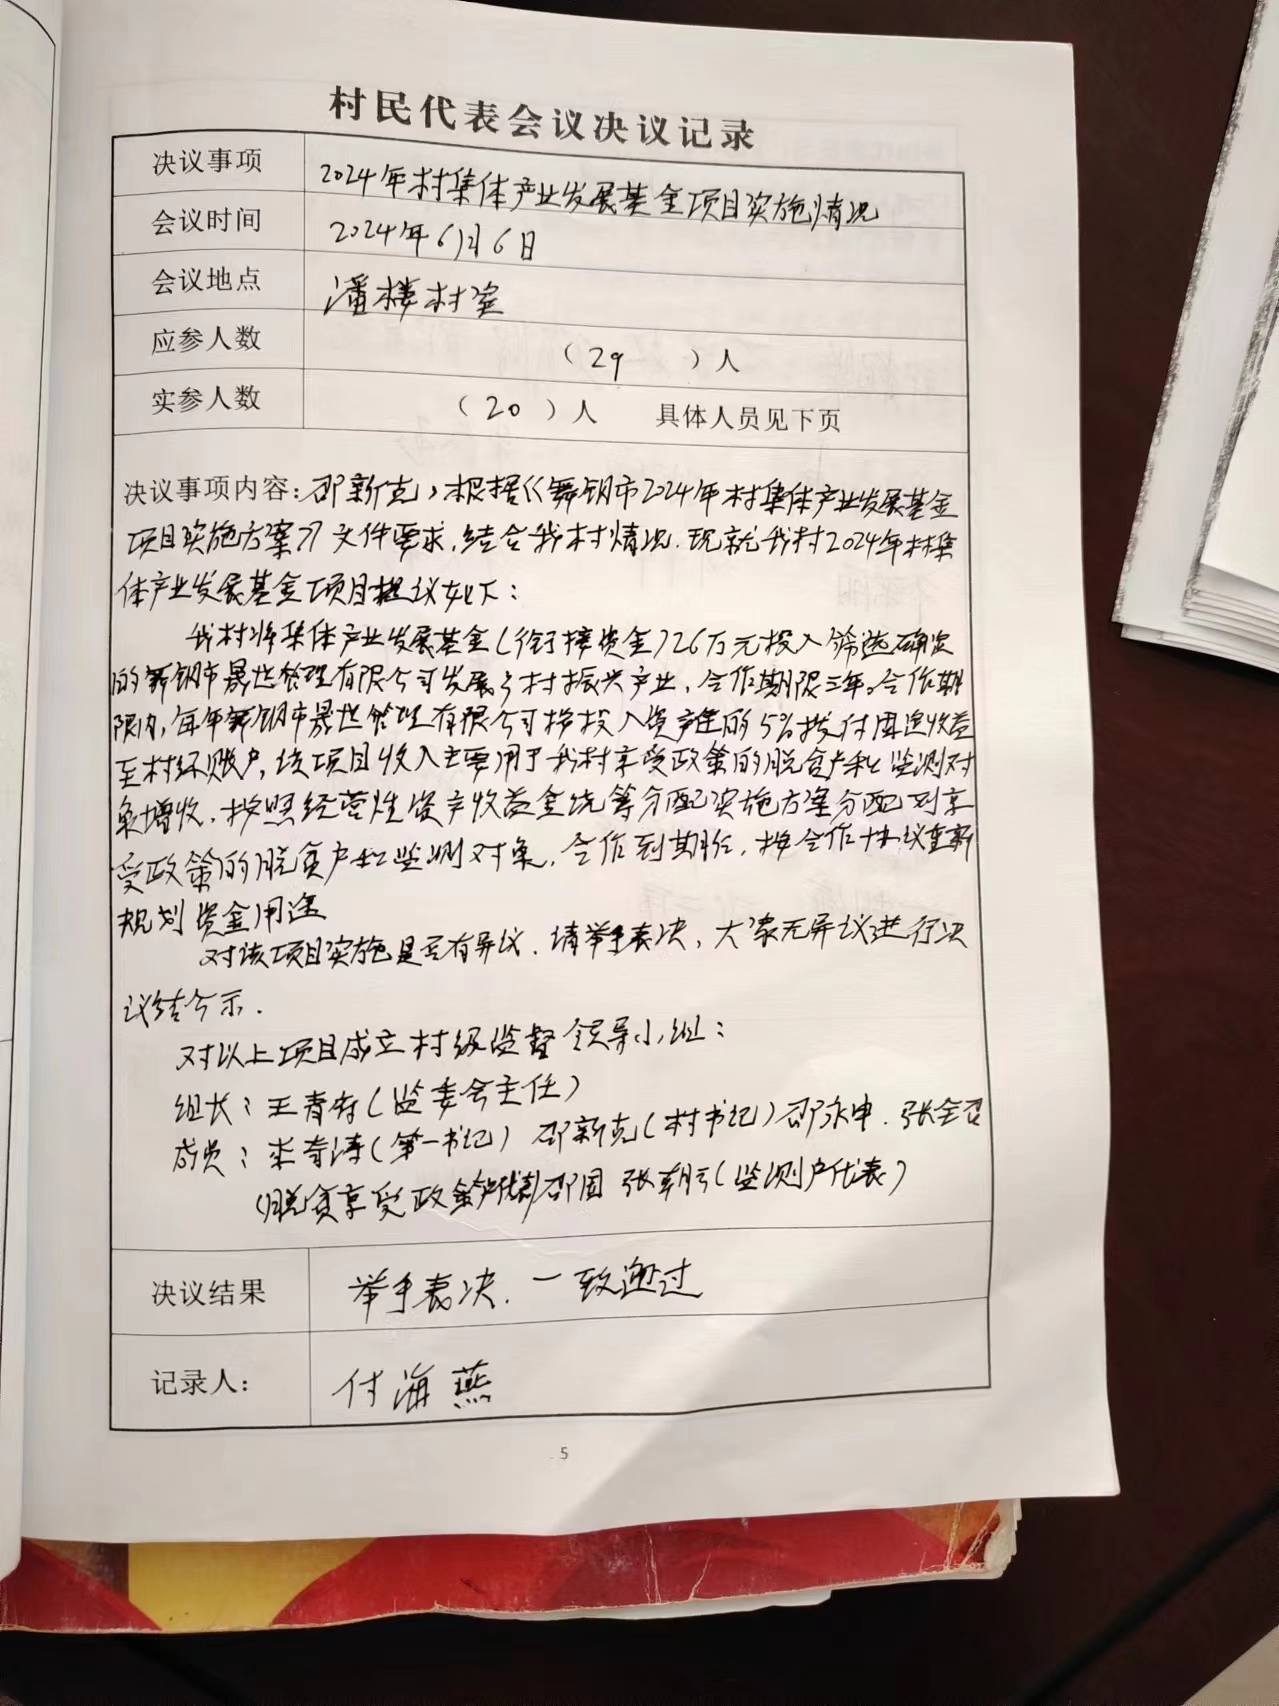 村民代表会议决议记录
决议事项 2024年村集体产业发展基金项目实施情况
会议时间 2024年6月6日
会议地点 潘楼村室
应参人数 （29 ）人
实参人数 （20 ）人 具体人员见下页
决议事项内容：邵新克，根据《舞钢市2024年村集体产业发展基金
项目实施方案》文件要求，结合我村情况，现就我村2024年村集
体产业发展基金项目提议如下：
我村将集体产业发展基金（衔接资金）26万元投入筛选确定
的舞钢市晟世管理有限公司发展乡村振兴产业，合作期限三年。合作期
限内，每年舞钢市晟世管理有限公司按投入资产的5%拨付固定收益
至村账户，该项目收入主要用于我村享受政策的脱贫户和监测对
象增收，按照经营性资产收益金统筹分配实施方案分配到享
受政策的脱贫户和监测对象，合作到期后，按合作协议重新
规划资金用途
对该项目实施是否有异议，请举手表决，大家无异议进行决
议结公示.
对以上项目成立村级监督领导小组：
组长：王青府（监委会主任）
成员：（第一书记） 邵新克（村书记）邵永申．张全
（脱贫享受政策户代表）邵国 张朝（监测户代表）
决议结果 举手表决．一致通过
记录人： 付海燕
5